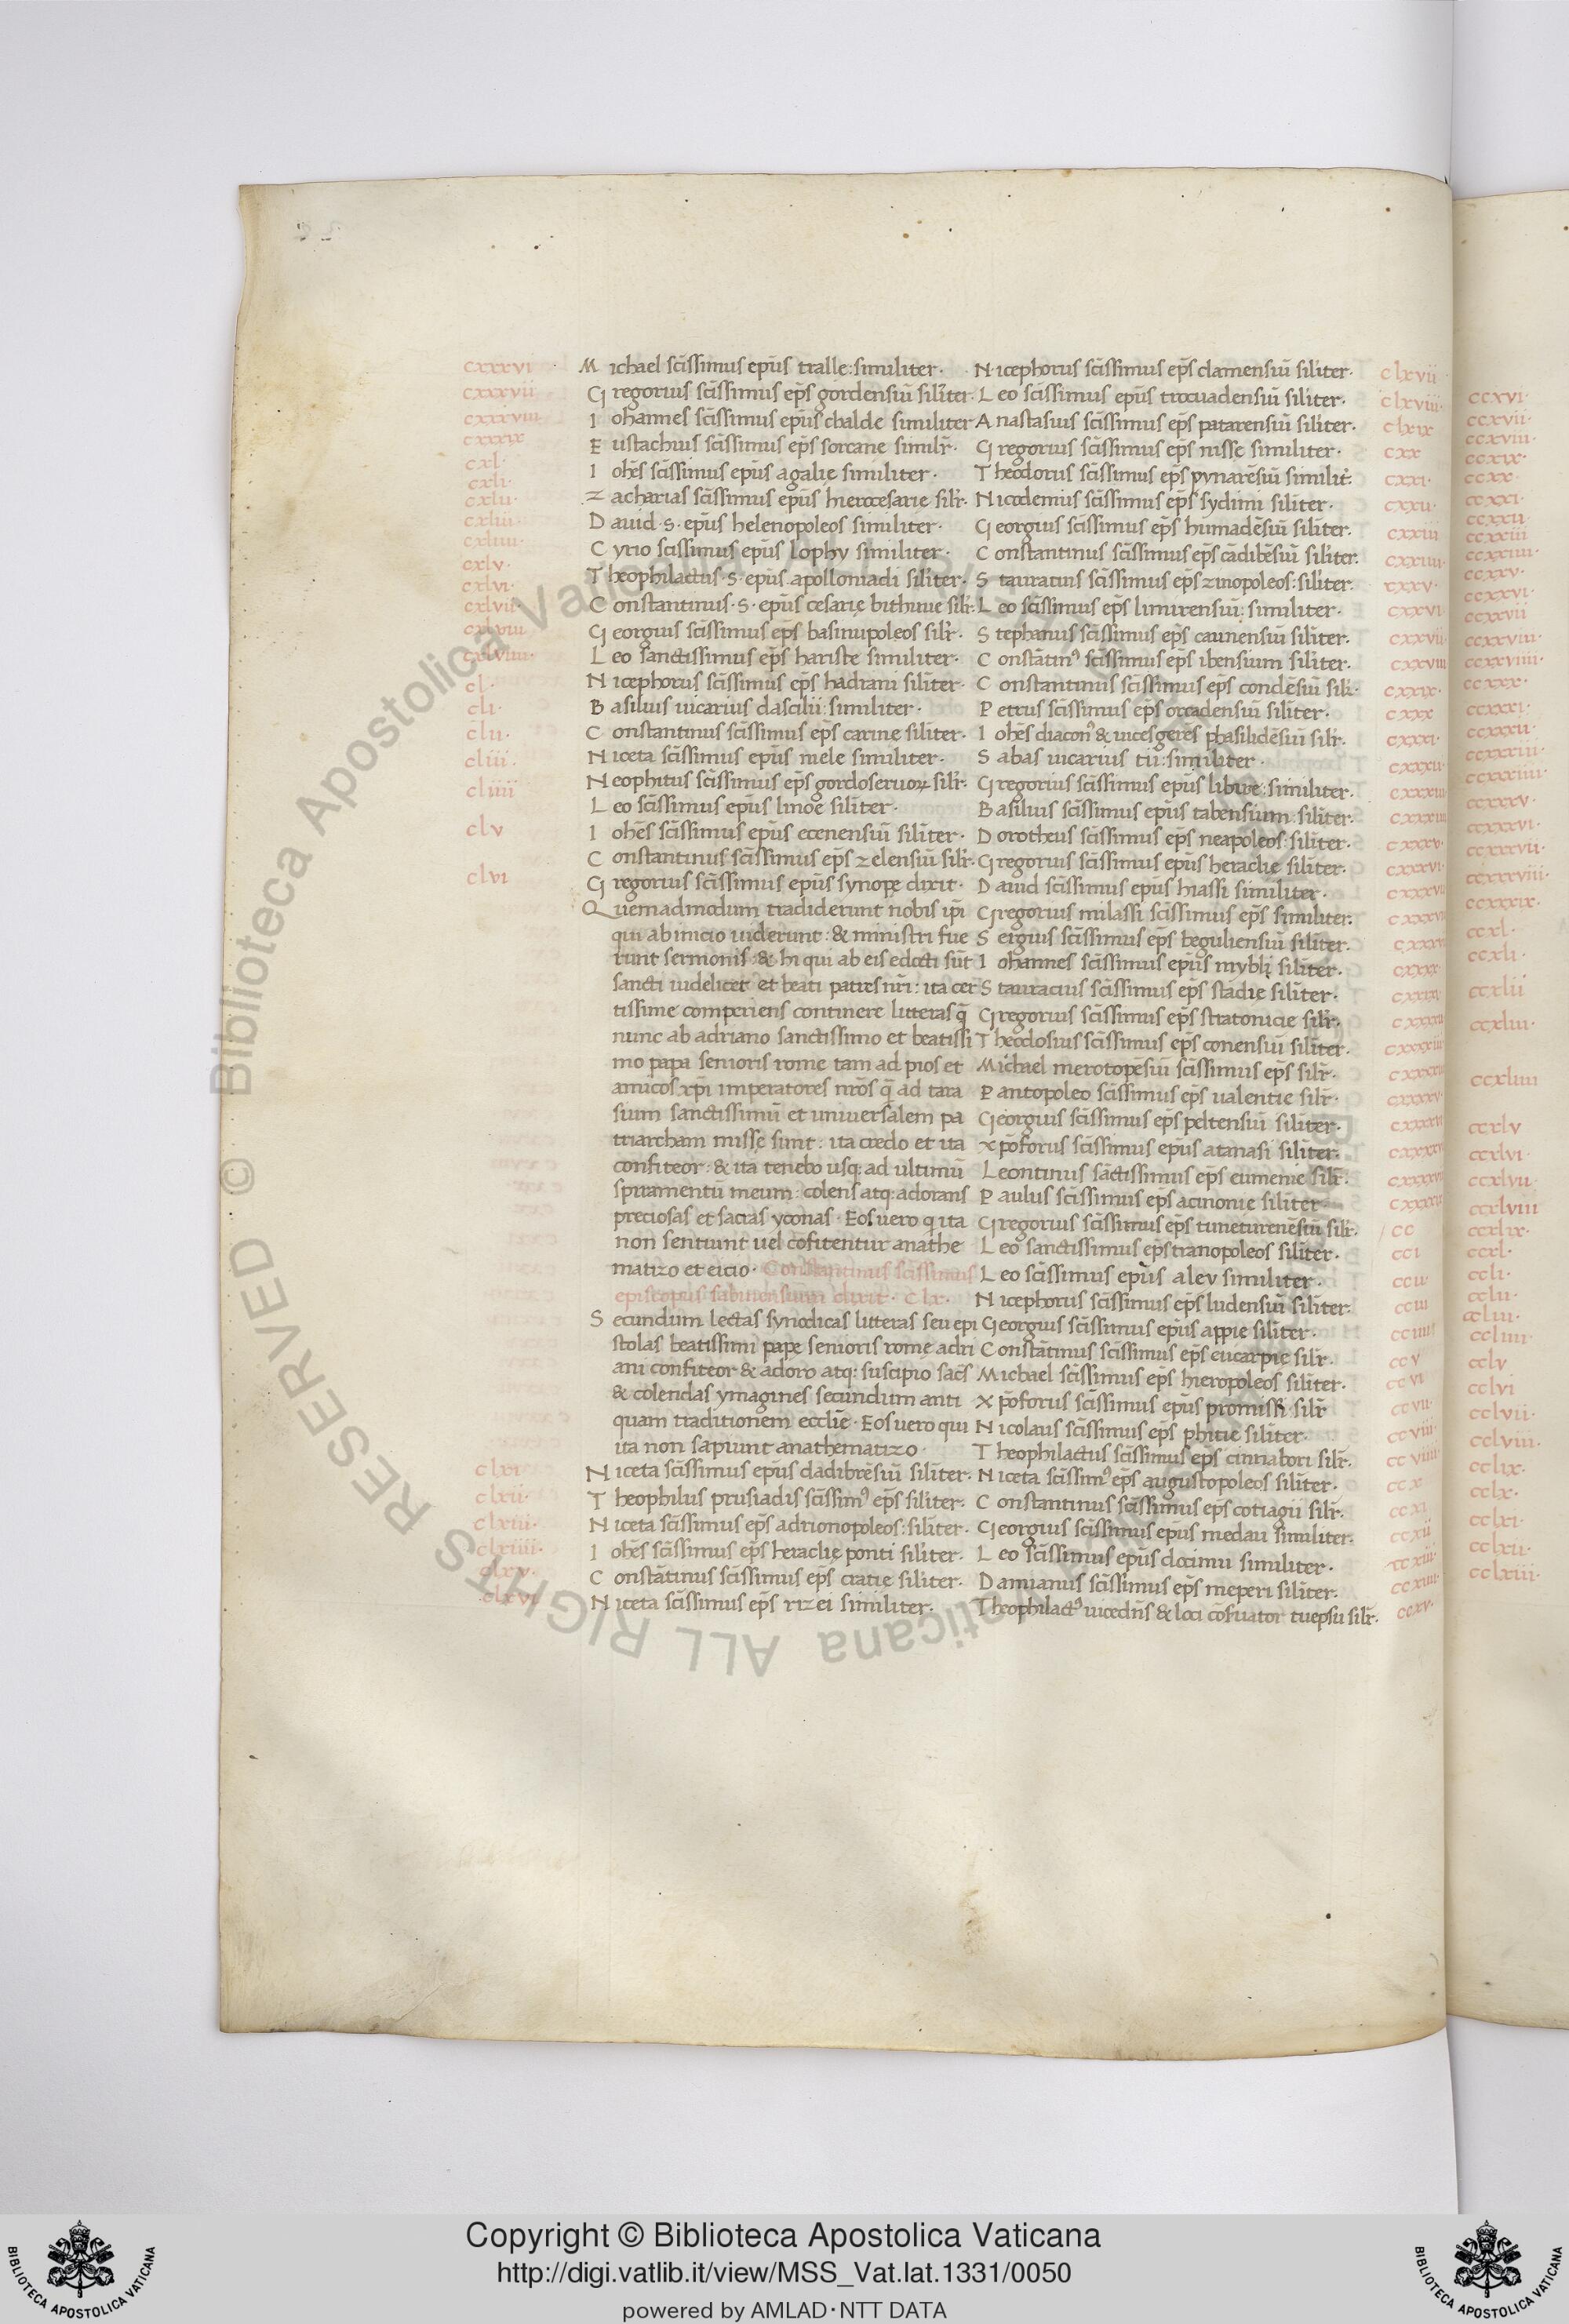 cxxxvi · Michael scissimus epūs tralle: similiter ·
cxxxvii Gregorius scissimus ep̄s gordensiū siliter ·
cxxxviii Iohannes scissimus epūs chalde similiter
cxxxix Eustachius scissimus ep̄s sorcane similr̄ ·
cxl · Ioh̄es scissimus epūs agalię similiter ·
cxli · Zacharias scissimus epūs hierocesarie silr̄ ·
cxlii · David · s · epūs helenopoleos similiter ·
cxliii · Cyrio scissimus epūs lophy similiter ·
cxliiii · Theophilactus · s · epūs apolloniadi siliter ·
cxlv · Constantinus · s · epūs cesarię bithinie silr̄ ·
cxlvi · Georgius scissimus ep̄s basinupoleos silr̄ ·
cxlvii · Leo sanctissimus ep̄s hariste similiter ·
cxlviii Nicephorus scissimus ep̄s hadrani siliter ·
cxlviiii · Basilius vicarius dascilii: similiter ·
cl · Constantinus scissimus ep̄s carine siliter ·
cli · Niceta scissimus epūs mele similiter ·
clii · Neophitus scissimus ep̄s gordoseruoꝝ silr̄ ·
cliii · Leo scissimus epūs linoe siliter ·
cliiii Ioh̄es scissimus epūs ecenensiū siliter ·
clv Constantinus scissimus ep̄s zelensiū silr̄ ·
clvi Gregorius scissimus epūs synope dixit ·
Quemadmodum tradiderunt nobis ip̄i
qui ab inicio viderunt: & ministri fue
runt sermonis: & hi qui ab eis edocti sūt
sancti videlicet et beati patres nr̄i: ita cer
tissime comperiens continere litteras q̄
nunc ab adriano sanctissimo et beatissi
mo papa senioris rome tam ad pios et
amicos xp̄i imperatores nr̄os q̄ ad tara
sium sanctissimū et universalem pa
triarcham missę sunt: ita credo et ita
confiteor: & ita tenebo usq; ad ultimū
spiramentū meum: colens atq; adorans
preciosas et sacras yconas · Eos vero q ita
non sentiunt vel cōfitentur anathe
matizo et eicio · Constantinus scissimus
episcopus sabinensium dixit · clx ·
Secundum lectas synodicas litteras seu epi
stolas beatissimi pape senioris rome adri
ani confiteor & adoro atq; suscipio sac̄s
& colendas ymagines secundum anti
quam traditionem eccl̄ie · Eos vero qui
ita non sapiunt anathematizo ·
clxi Niceta scissimus epūs dadibrēsiū siliter ·
clxii · Theophilus prusiadis scissimꝰ ep̄s siliter ·
clxiii · Niceta scissimus ep̄s adrionopoleos: siliter ·
clxiiii · Ioh̄es scissimus ep̄s heraclię ponti siliter ·
clxv · Constātinus scissimus ep̄s cratię siliter ·
clxvi Niceta scissimus ep̄s rizei similiter ·
Nicephorus scissimus ep̄s clamensiū siliter · clxvii
Leo scissimus epūs trocuadensiū siliter · clxviii ·
Anastasius scissimus ep̄s patarensiū siliter · clxix
Gregorius scissimus ep̄s nisse similiter · cxx
Theodorus scissimus ep̄s pynarēsiū similit: cxxi ·
Nicodemius scissimus ep̄s sydimi siliter · cxxii ·
Georgius scissimus ep̄s humadēsiū siliter · cxxiii
Constantinus scissimus ep̄s cādibēsiū siliter · cxxiiii ·
Stauratius scissimus ep̄s zinopoleos: siliter · cxxv ·
Leo scissimus ep̄s limirensiū: similiter · cxxvi
Stephanus scissimus ep̄s caunensiū siliter · cxxvii
Constātinꝰ scissimus ep̄s ibensium siliter · cxxviii
Constantinus scissimus ep̄s condēsiū sili · cxxix ·
Petrus scissimus ep̄s orcadensiū siliter · cxxx
Ioh̄es diaconꝰ & vices gerēs phasilidēsiū silr̄ · cxxxi ·
Sabas vicarius tii: similiter · cxxxii
Gregorius scissimus epūs libire: similiter · cxxxiii
Basilius scissimus epūs tabensium: siliter · cxxxiiii
Dorotheus scissimus ep̄s neapoleos: siliter · cxxxv ·
Gregorius scissimus epūs heraclię siliter · cxxxvi
David scissimus epūs hiassi similiter · cxxxvii
Gregorius milassi scissimus ep̄s similiter ·
Sergius scissimus ep̄s beguliensiū siliter ·
Iohannes scissimus epūs mybli siliter ·
Stauracius scissimus ep̄s stādię siliter ·
Gregorius scissimus ep̄s stratonicie silr̄ ·
Theodosius scissimus ep̄s conensiū siliter ·
Michael merotopēsiū scissimus ep̄s silr̄ ·
Pantopoleo scissimus ep̄s valentie silr̄ ·
Georgius scissimus ep̄s peltensiū siliter ·
Xp̄oforus scissimus epūs atanasi siliter ·
Leontinus sāctissimus ep̄s eumenię silr̄ ·
Paulus scissimus ep̄s acmonie siliter
Gregorius scissimus ep̄s timeturenēsiū silr̄ · cc
Leo sanctissimus ep̄s tranopoleos siliter · cci
Leo scissimus epūs alev similiter · ccii
Nicephorus scissimus ep̄s ludensiū siliter · cciii
Georgius scissimus epūs appię siliter · cciiii
Constātinus scissimus ep̄s eucarpię silr̄ · ccv
Michael scissimus ep̄s hieropoleos siliter · ccvi
Xp̄oforus scissimus epūs promissi · silr̄ ccvii ·
Nicolaus scissimus ep̄s phitie siliter · ccviii ·
Theophilactus scissimus ep̄s cinnabori silr̄ · ccviiii
Niceta scissimꝰ ep̄s augustopoleos siliter · ccx
Constantinus scissimus ep̄s cotiagii silr̄ · ccxi
Georgius scissimus epūs medau similiter · ccxii
Leo scissimus epūs docimu similiter · ccxiii ·
Damianus scissimus ep̄s meperi siliter · ccxiiii
Theophilactꝰ vicedn̄s & loci cōservator tuepsu silr̄ · ccxv ·
ccxvi ·
ccxvii ·
ccxviii ·
ccxix ·
ccxx ·
ccxxi ·
ccxxii ·
ccxxiii
ccxxiiii ·
ccxxv ·
ccxxvi ·
ccxxvii
ccxxviii ·
ccxxviiii ·
ccxxx ·
ccxxxi ·
ccxxxii ·
ccxxxiii ·
ccxxxiiii ·
ccxxxv ·
ccxxxvi ·
ccxxxvii ·
ccxxxviii ·
ccxxxix ·
ccxl ·
ccxli ·
ccxlii
ccxliii ·
ccxliiii
ccxlv
ccxlvi ·
ccxlvii ·
ccxlviii
ccxlix ·
ccxl ·
ccli ·
cclii ·
ccliii ·
ccliiii
cclv
cclvi
cclvii ·
cclviii ·
cclix ·
cclx ·
cclxi ·
cclxii ·
cclxiii ·
© Biblioteca Apostolica Vaticana ALL RIGHTS RESERVED
BIBLIOTECA APOSTOLICA VATICANA
Copyright © Biblioteca Apostolica Vaticana
http://digi.vatlib.it/view/MSS_Vat.lat.1331/0050
powered by AMLAD·NTT DATA
BIBLIOTECA APOSTOLICA VATICANA